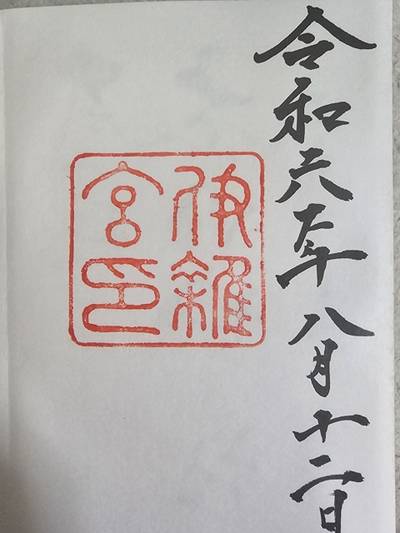 令和六年八月十二日
伊雜
宮印